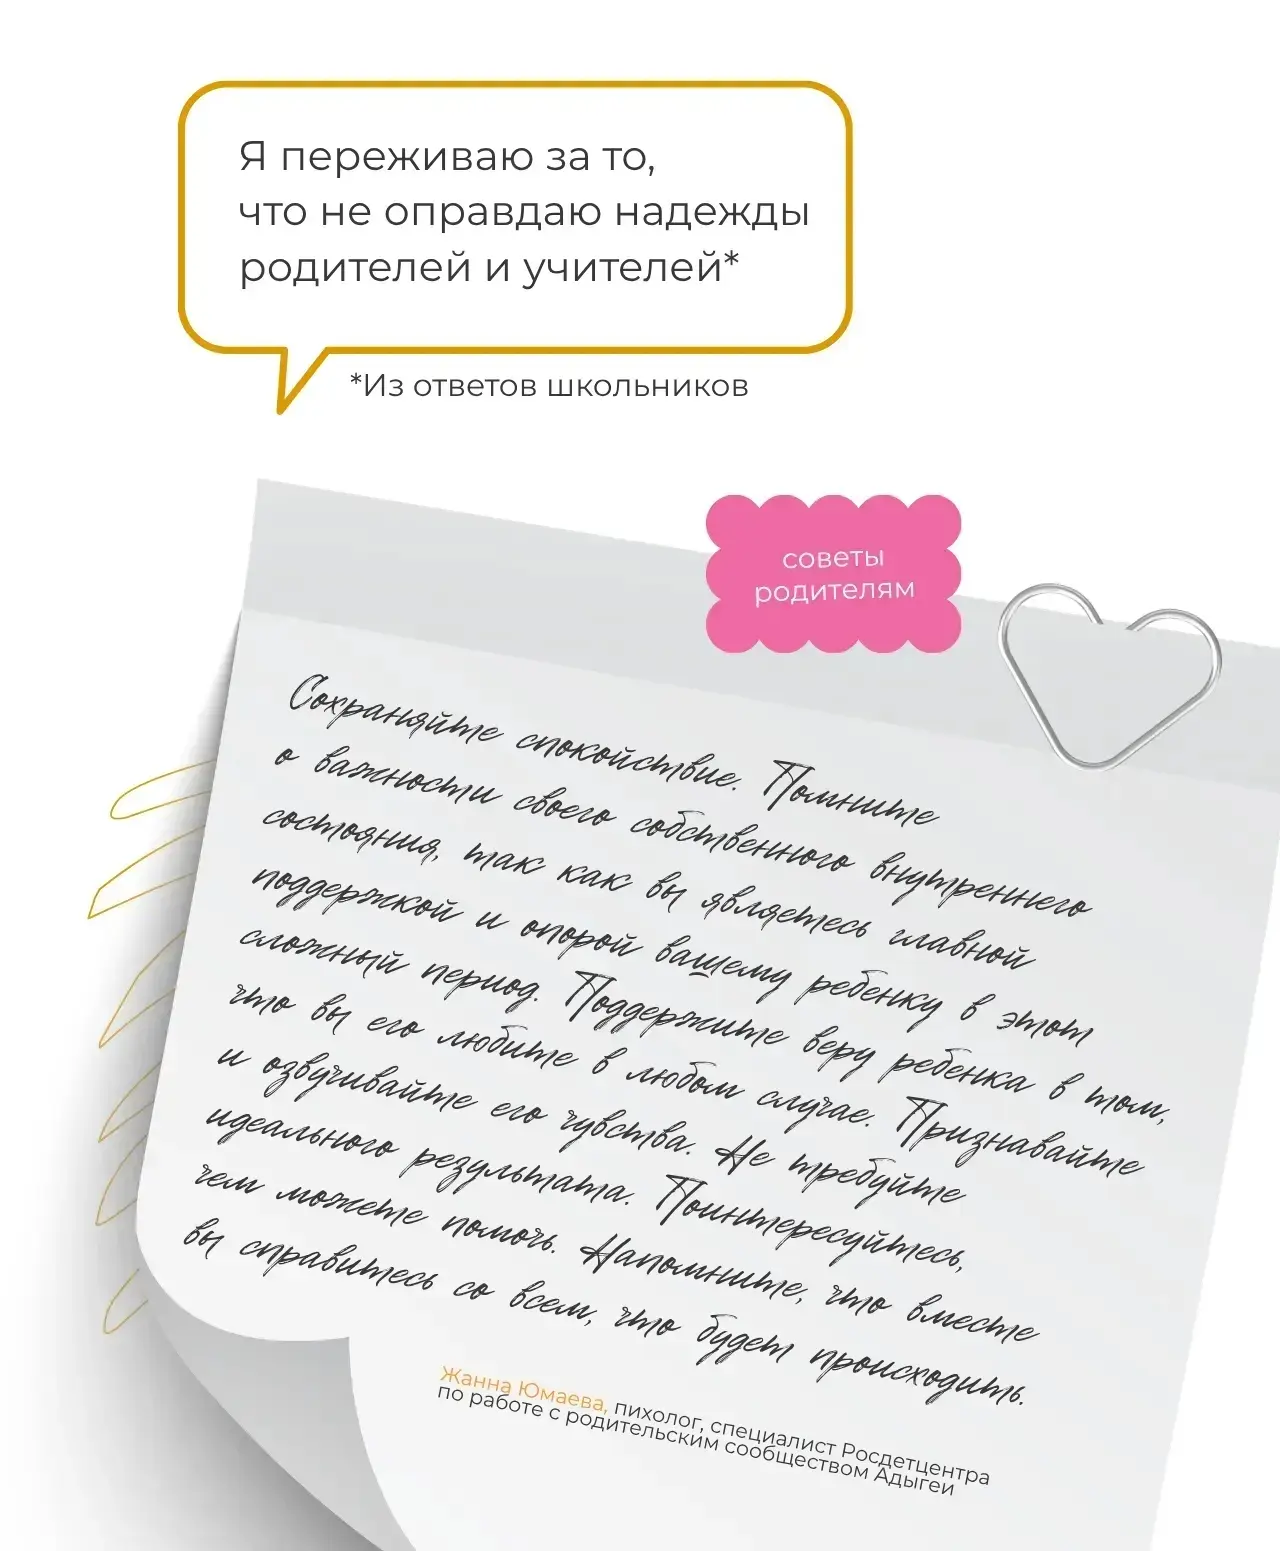 Я переживаю за то,
что не оправдаю надежды
родителей и учителей*
*Из ответов школьников
советы
родителям
Сохраняйте спокойствие. Помните
о важности своего собственного внутреннего
состояния, так как вы являетесь главной
поддержкой и опорой вашему ребенку в этот
сложный период. Поддержите веру ребенка в том,
что вы его любите в любом случае. Признавайте
и озвучивайте его чувства. Не требуйте
идеального результата. Поинтересуйтесь,
чем можете помочь. Напомните, что вместе
вы справитесь со всем, что будет происходить.
Жанна Юмаева, пихолог, специалист Росдетцентра
по работе с родительским сообществом Адыгеи